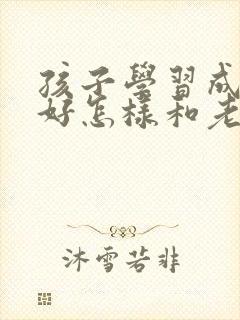 孩子學習成
好怎樣和老
沐雪若非